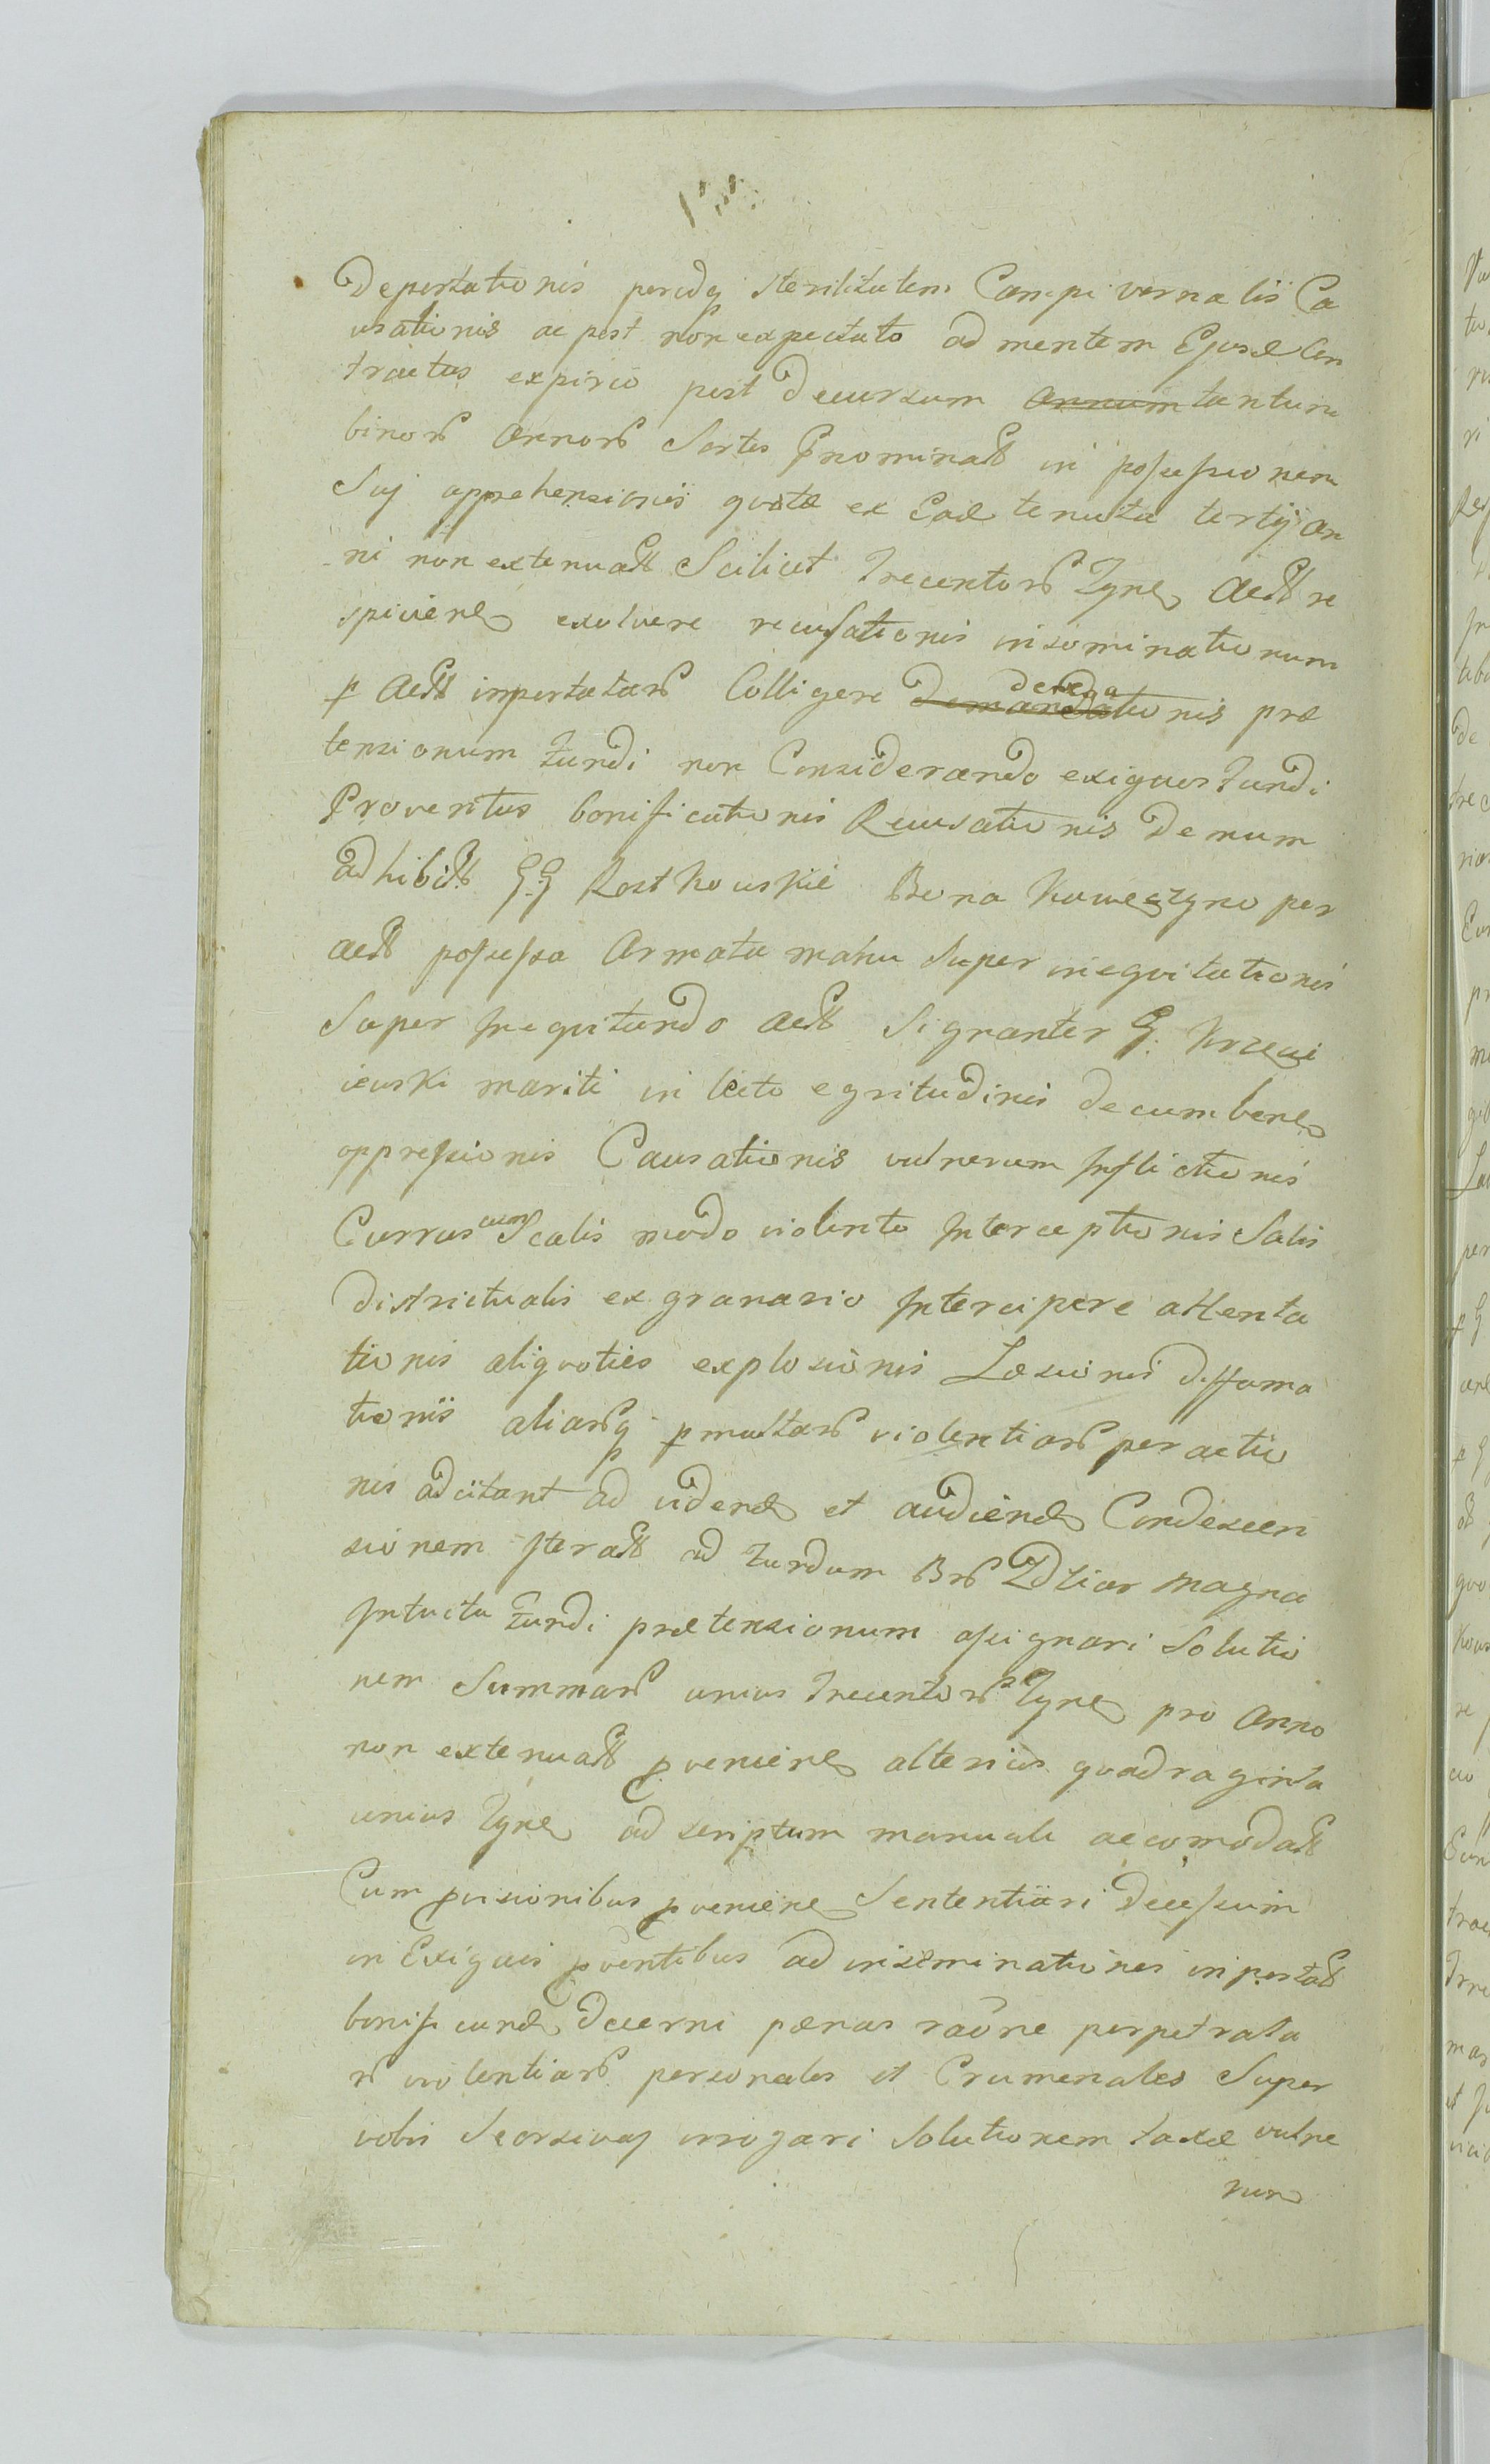 Deportationis peridq sterilitatem Campi vernalis Ca
usationis ac post non expectato ad mentem Ejusd Con
tractus expirio post Decursum annum tantum
binor Annor Sortes Pnominat in possessionem
Suj apprehensionis ex Ead tenuta tertij An
ni non extenuat Scilicet Trecentor Tynf Act re
spicien exolvere recusationis inseminationum
p Act importatar Colligere Demandationis denega præ
tensionum fundi non Considerando exiguos fundi
Proventus bonificationis Recusationis Demum
adhibit GG Rostkowskie Bona per
act possessa Armata manu Super inequitationis
Super Inequitando Act Signanter G.
iewski mariti in lecto egritudinis decumben
oppressionis Causationis vulnerum Inflictionis
Currus cum Scalis modo violento Interceptionis Salis
districtualis ex granario Intercipere attenta
tionis aliquoties explosionis Læsionis diffama
tionis aliarq pmultar violentiar peractio
nis adcitant ad videnđ et audienđ Condescen
sionem Iterat ad fundum Bnr Zdziar Magna
Intuitu fundi prætensionum assignari Solutio
nem Summar unius Trecentor Tynf pro Anno
non extenuat provenien alterius quadraginta
unius Tynf ad scriptum manuale accomodat
Cum provisionibus provenien Sententiari Decessum
in Exiguis proventibus ad inseminationes inportat
bonificand Decerni pænas raōne perpetrata
r violentiar personales et Crumenales Super
vobis Seorsivas irrogari Solutionem taxæ vulne
rum